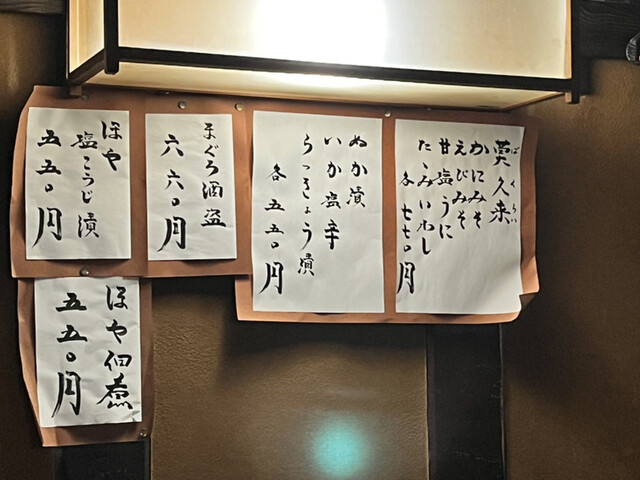 莫久来
ばくらい
かにみそ
えびみそ
甘塩うに
たゝみいわし
各七七〇円
ぬか漬
いか塩辛
らっきょう漬
各五五〇円
まぐろ酒盗
六六〇円
ほや
塩こうじ漬
五五〇円
ほや佃煮
五五〇円